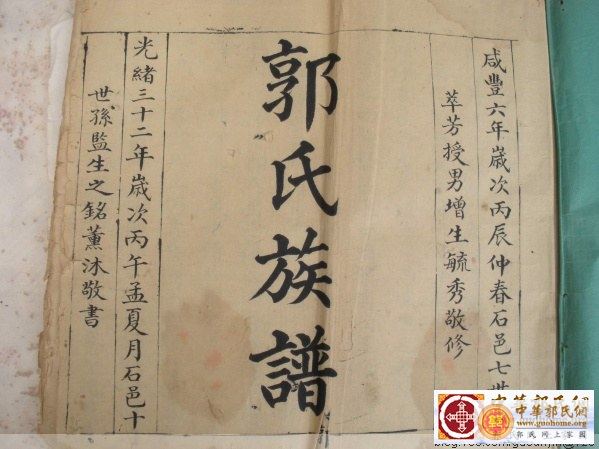 咸豐六年歲次丙辰仲春石邑七世
萃芳授男增生毓秀敬修
郭氏族譜
光緒三十二年歲次丙午孟夏月石邑十
世孫監生之銘薰沐敬書
中華郭氏網
www.guohome.org
郭氏網上家園